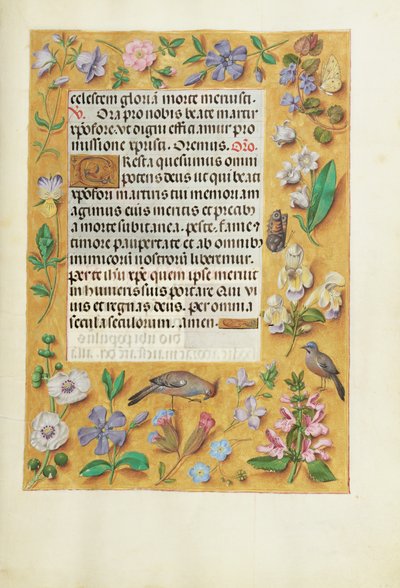 celestem gloria morte meruisti.
V. Ora pro nobis beate martir
xpofore. Ut digni efficiamur pro
missione xpristi. Oremus. Oro.
Presta quesumus omni
potens deus ut qui beati
xpofori martiris tui memoriam
agimus eius meritis et precib9
a morte subitanea. peste, fame,
timore paupertate et ab omnib9
inimicori nostrorū liberemur.
per te ihu xpe quem ipse meruit
in humeris suis portare Qui vi
vis et regnas deus. per omnia
secula seculorum. Amen.